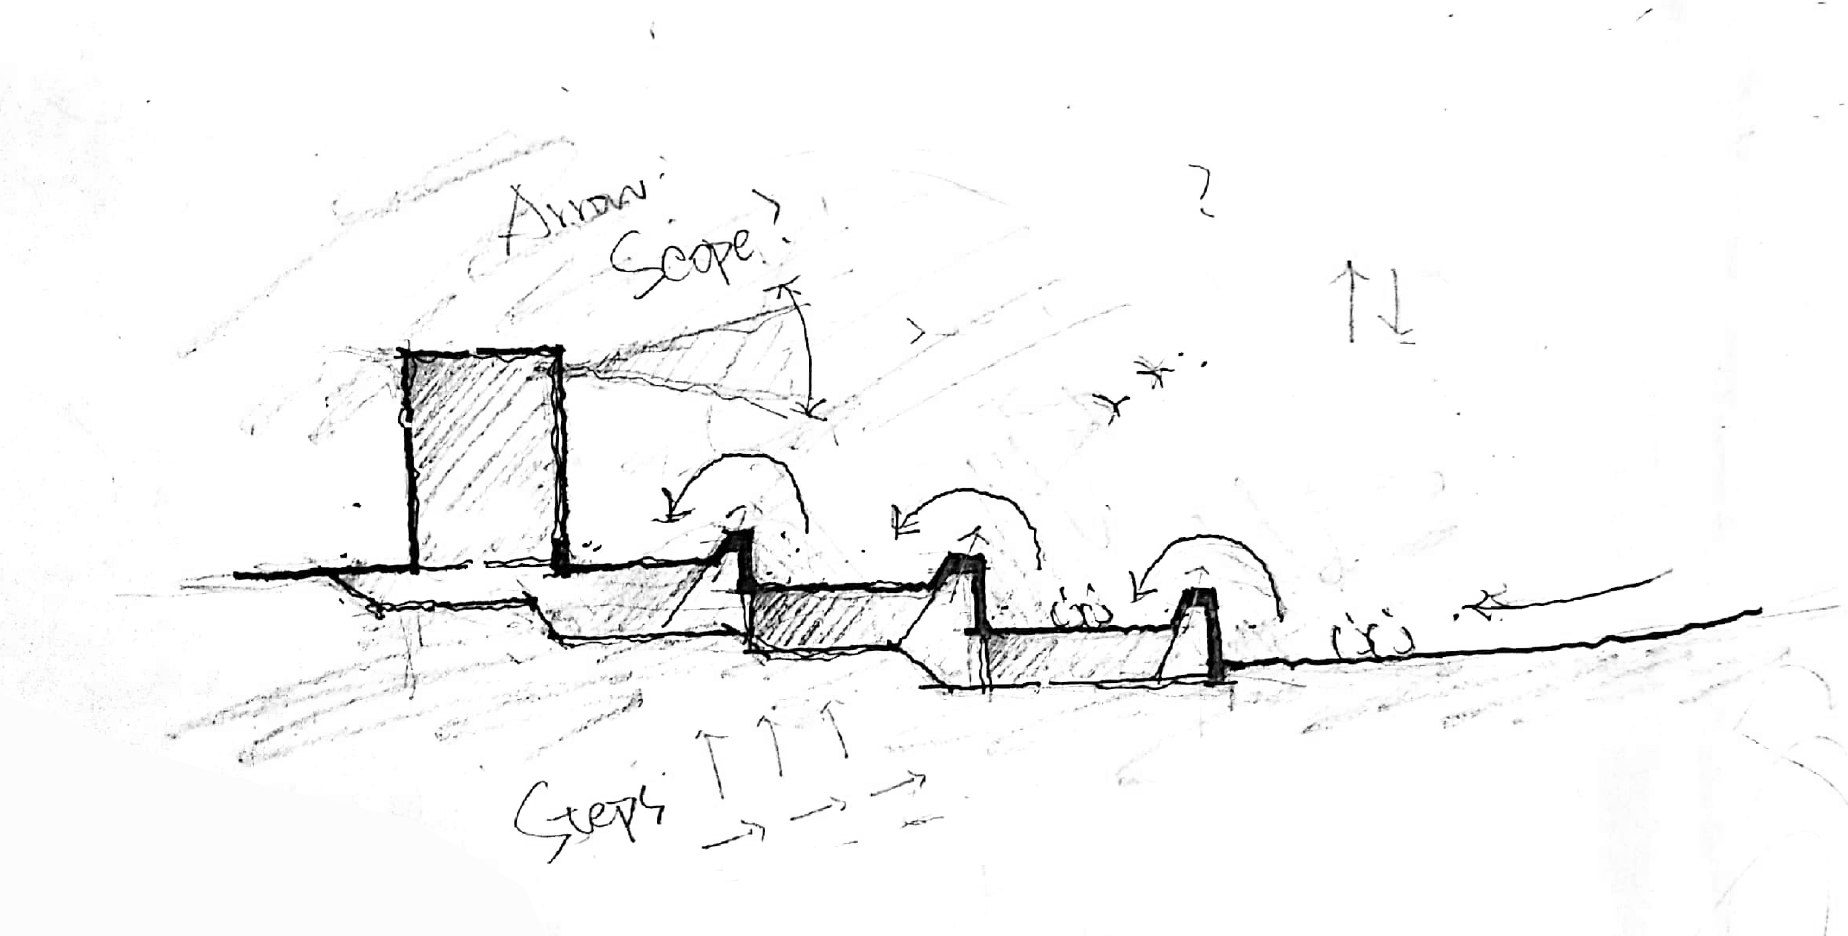 Arrow
Scope?
?
Steps